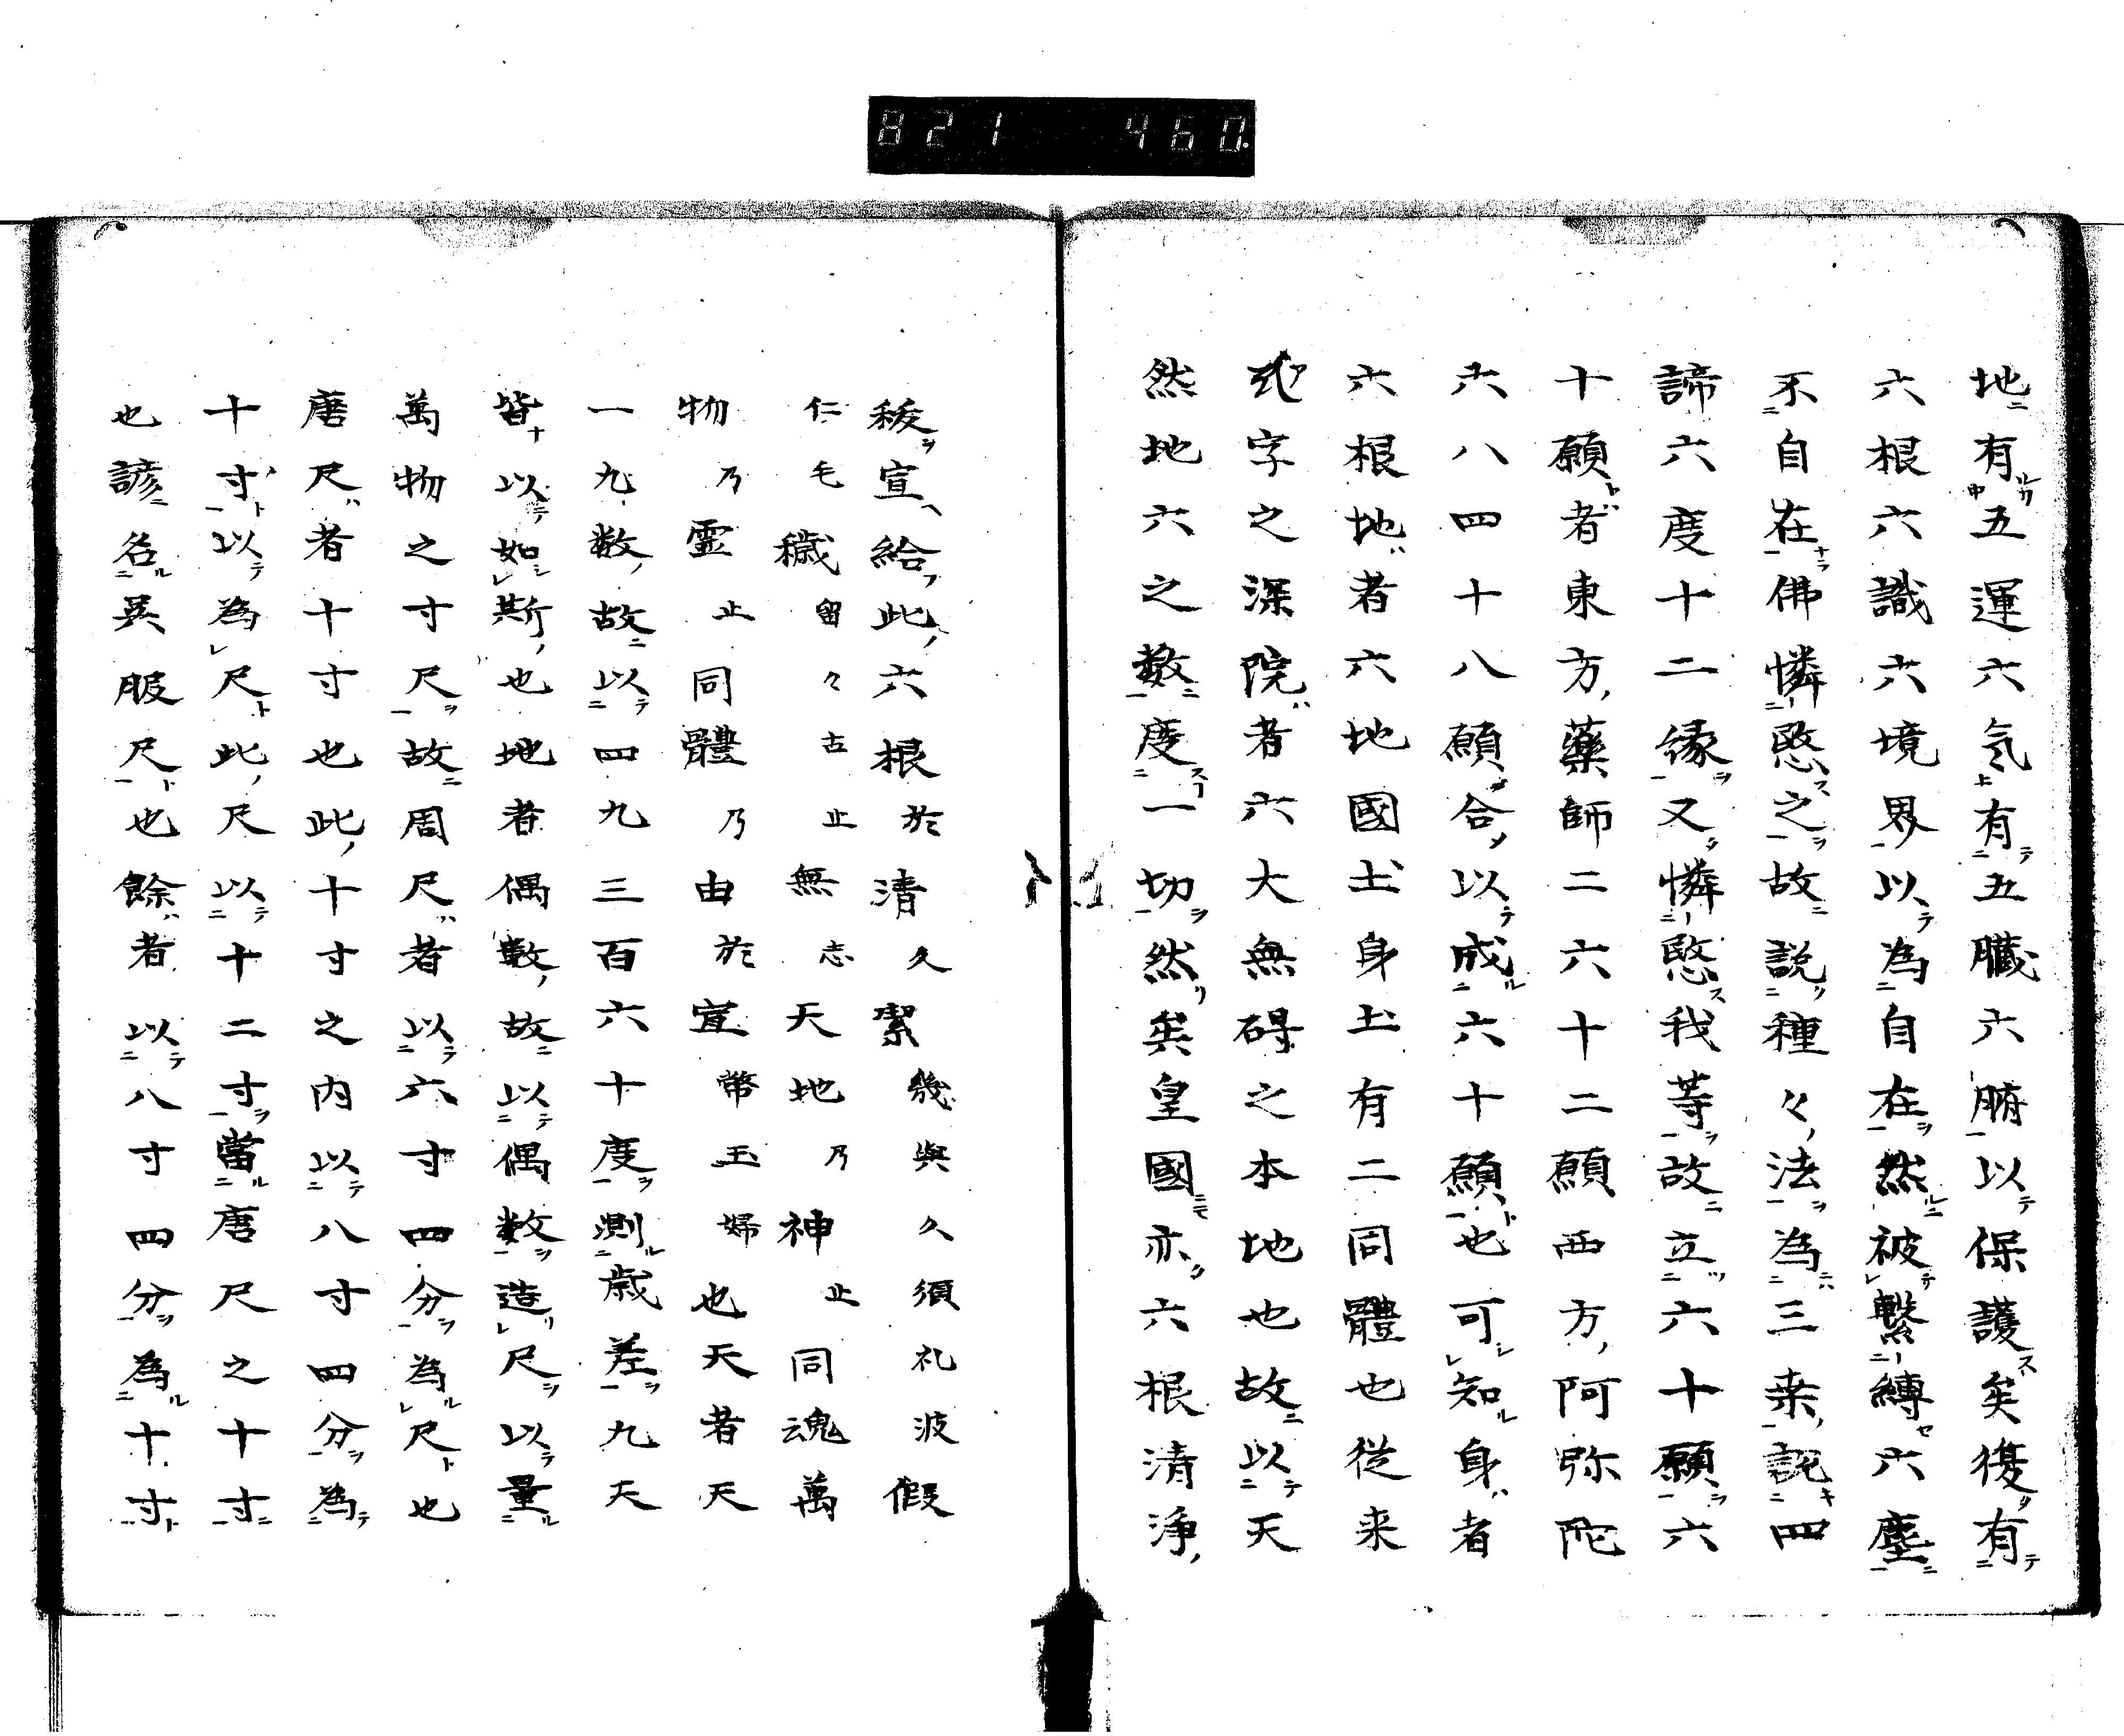 821 460.
地有五運六気有五臓六腑以保護矣復有
六根六識六境界以為自在然被繋縛六塵
不自在佛憐愍之故説種々法為三乗説四
諦六度十二縁又憐愍我等故立六十願六
十願者東方薬師二六十二願西方阿弥陀
六八四十八願合以成六十願也可知身者
六根地者六地國土身土有二同體也従来
字之深院者六大無碍之本地也故以天
然地六之数度一切然矣皇國亦六根清浄
秡宣給此六根於清久潔幾與久須礼波假
仁毛穢留々古止無志天地乃神止同魂萬
物乃霊止同體乃由於宣幣玉婦也天者天
一九数故以四九三百六十度測歳差九天
皆以如斯也地者偶数故以偶数造尺以量
萬物之寸尺故周尺者以六寸四分為尺也
唐尺者十寸也此十寸之内以八寸四分為
十寸以為尺此尺以十二寸當唐尺之十寸
也諺名呉服尺也餘者以八寸四分為十寸